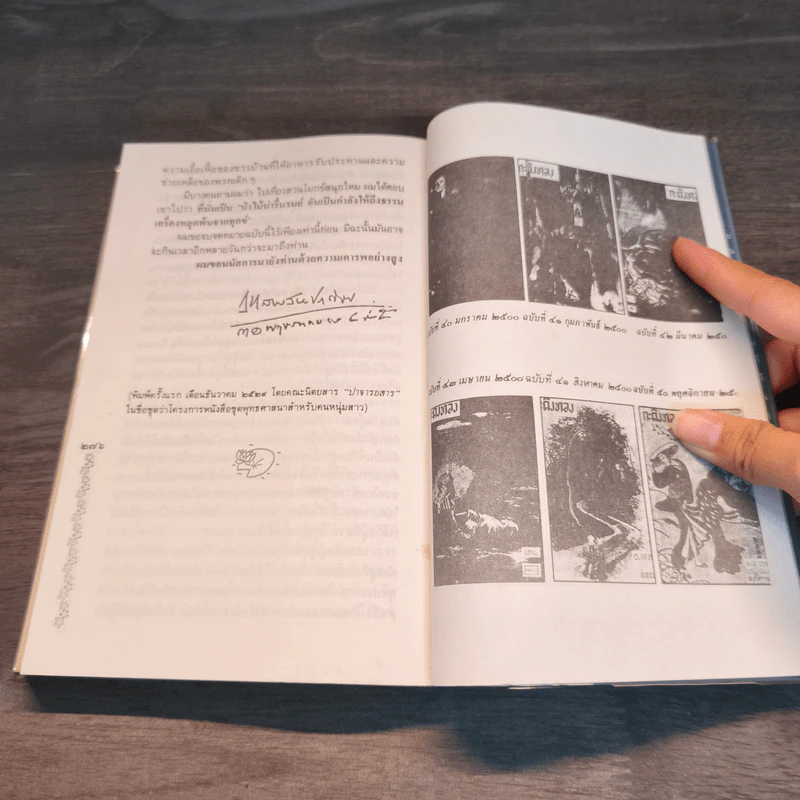 ความเอื้อเฟื้อของชาวบ้านที่ให้อาหารรับประทานและความ
ช่วยเหลือของพรกเด็ก ๆ
มีบางคนถามผมว่า ไปเที่ยวสวนโมกข์สนุกไหม ผมได้ตอบ
เขาไปว่า ที่นั่นเป็น "ป่าไม้น่ารื่นรมย์ อันเป็นกำลังให้ถึงธรรม
เครื่องหลุดพ้นจากทุกข์"
ผมขอจบจดหมายฉบับนี้ไว้เพียงเท่านี้ก่อน มิฉะนั้นมันอาจ
จะกินเวลาอีกหลายวันกว่าจะมาถึงท่าน
ผมขอนมัสการมายังท่านด้วยความเคารพอย่างสูง
(พิมพ์ครั้งแรก เดือนธันวาคม ๒๕๒๙ โดยคณะนิตยสาร "ปาจารยสาร"
ในชื่อชุดว่าโครงการหนังสือชุดพุทธศาสนาสำหรับคนหนุ่มสาว)
๒๗๖
กะดึงทอง
กะดึงทอง
ที่ ๔๐ มกราคม ๒๕๐๐ ฉบับที่ ๔๑ กุมภาพันธ์ ๒๕๐๐ ฉบับที่ ๔๒ มีนาคม ๒๕๐
ที่ ๔๓ เมษายน ๒๕๐๐ ฉบับที่ ๔๑ สิงหาคม ๒๕๐๐ ฉบับที่ ๕๐ พฤศจิกายน ๒๕๐
กะดึงทอง
กะดึงทอง